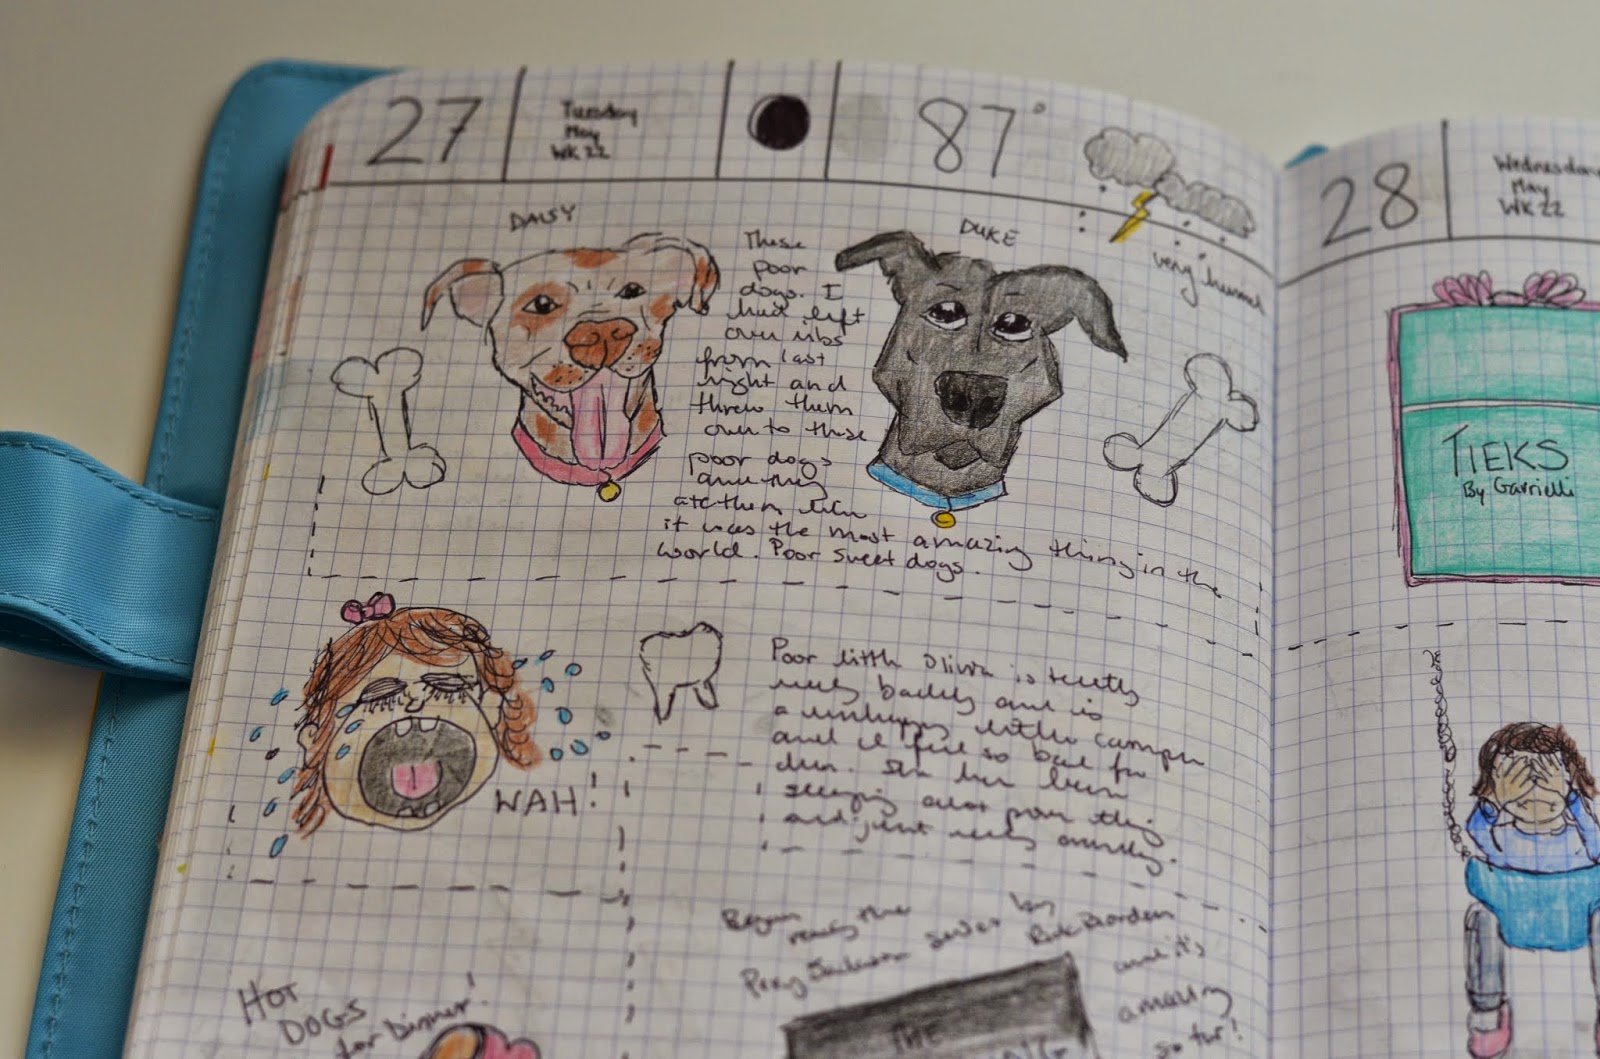 27
Tuesday
May
WK 22
87°
very humid
DAISY
DUKE
These
poor
dogs. I
had left
over ribs
from last
night and
threw them
over to these
poor dogs
and they
ate them like
it was the most amazing thing in the
world. Poor sweet dogs.
WAH!
Poor little Olivia is teething
really badly and is
a unhappy little camper
and I feel so bad for
her. She has been
sleeping a lot poor thing
and just really cranky.
HOT
DOGS
for Dinner!
Began reading the
Percy Jackson series by
Rick Riordan
and it's
amazing
so far!
THE
28
Wednesday
May
WK 22
TIEKS
By Gavrielli